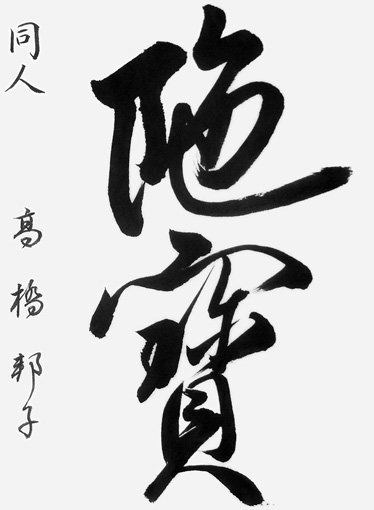 寶
同人 高橋邦子